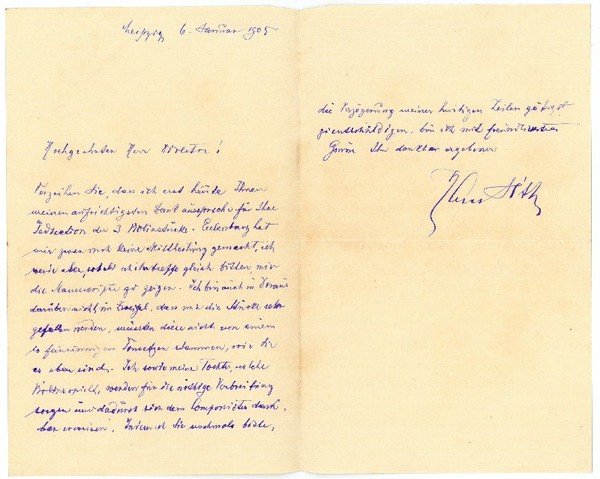 Leipzig 6. Januar 1905
Hochgeehrter Herr Director!
Verzeihen Sie, dass ich erst heute Ihnen
meinen aufrichtigsten Dank ausspreche für Ihre
Dedication der 3 Violinstücke. Eulenburg hat
mir zwar noch keine Mittheilung gemacht, ich
werde aber, sobald ich ihn treffe gleich bitten mir
die Manuscripte zu zeigen. Ich bin auch im Voraus
darüber nicht im Zweifel, dass mir die Stücke sehr
gefallen werden, müssten diese nicht von einem
so feinsinnigen Tonsetzer stammen, wie Sie
es eben sind. Ich sowie meine Tochter, welche
Violine spielt, werden für die nöthige Verbreitung
sorgen und dadurch sich dem Componisten dank-
bar erweisen. Indem ich Sie nochmals bitte,
die Verzögerung meiner heutigen Zeilen gütigst
zu entschuldigen, bin ich mit freundlichsten
Grüssen Ihr dankbar ergebener
Hans Sitt